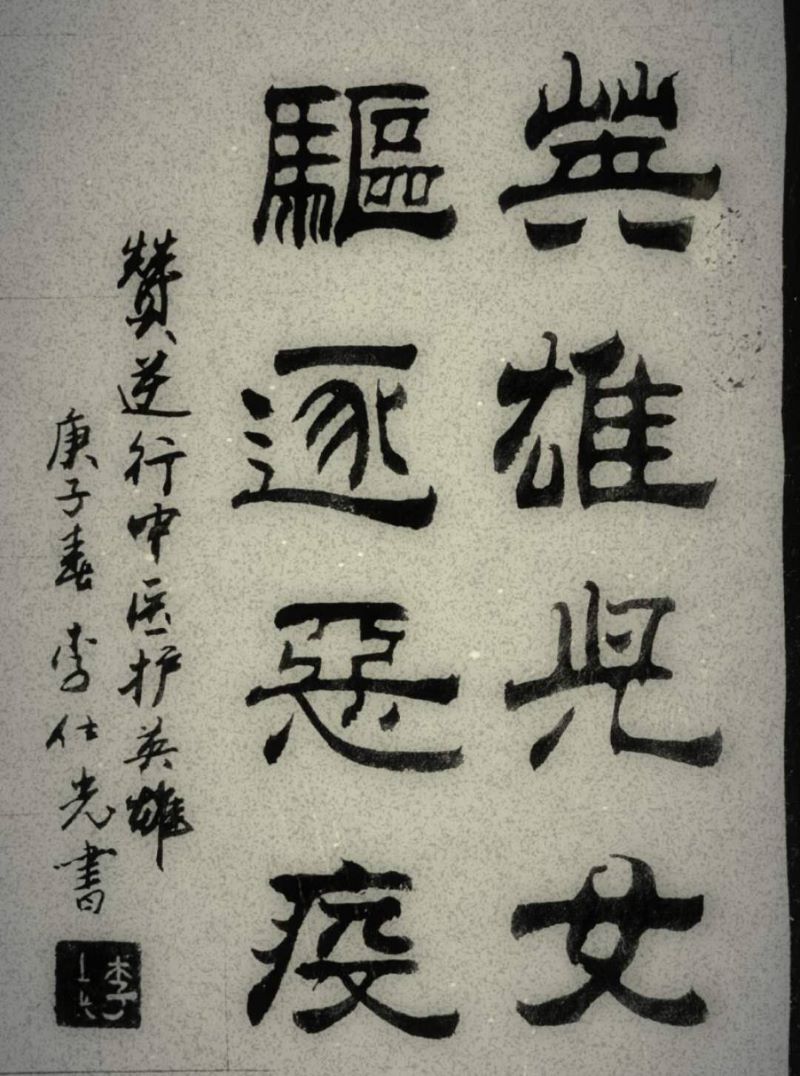 英雄兒女
驅逐惡疫
赞逆行中医护英雄
庚子春李仕光書